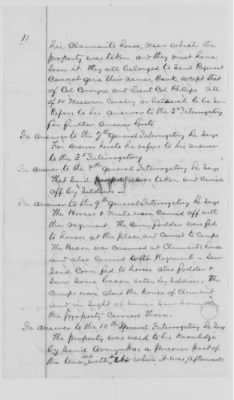 11
his, Claimants house, near which the
property was taken and they must have
seen it. they all belonged to said Regiment
Cannot give their names, Rank, except that
of Col and Lieut Col Philips. All
of 10 Missouri Cavalry
Refers to his Answer to the 3rd Interrogatory
for further Answer hereto
In Answer to the 7th General Interrogatory he Says
For Answer hereto he refers to his Answer
to the 3rd Interrogatory
In Answer to the 8th General Interrogatory he Says
That Said property was taken and Carried
off by Soldiers
In Answer to the 9th General Interrogatory he Says
The Horses & Mule were Carried off with
the regiment. The Corn, fodder was fed
to horses at the place and Carried to Camps
The Bacon was Consumed at Claimants house
and also Carried with Regiment. Saw
Said Corn fed to horses also fodder &
Saw Some bacon eaten by Soldiers. The
Camps near the house of Claimant
and in Sight of Same
the property Carried there.
In Answer to the 10th General Interrogatory he Says
The property was used to his Knowledge
by Said Army
the where it was, afterwards